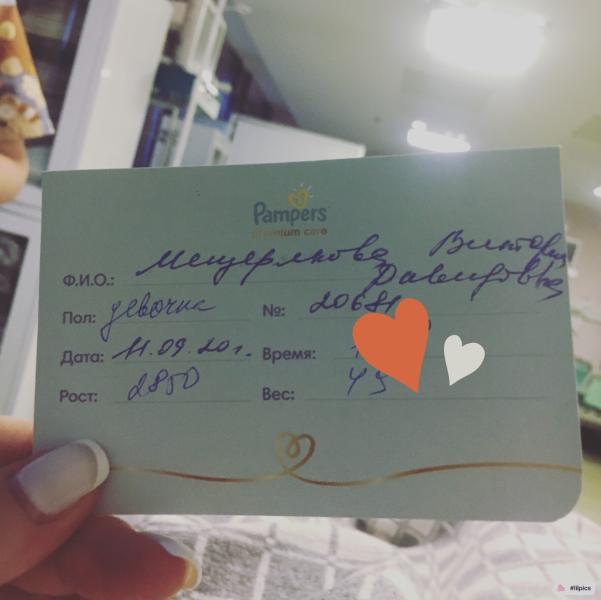 Pampers
premium care
Ф.И.О.: Мещерякова Виктория
Давидовна
Пол: девочка №: 20681
Дата: 11.09.20г. Время:
Рост: 2850 Вес: 49
#lilpics